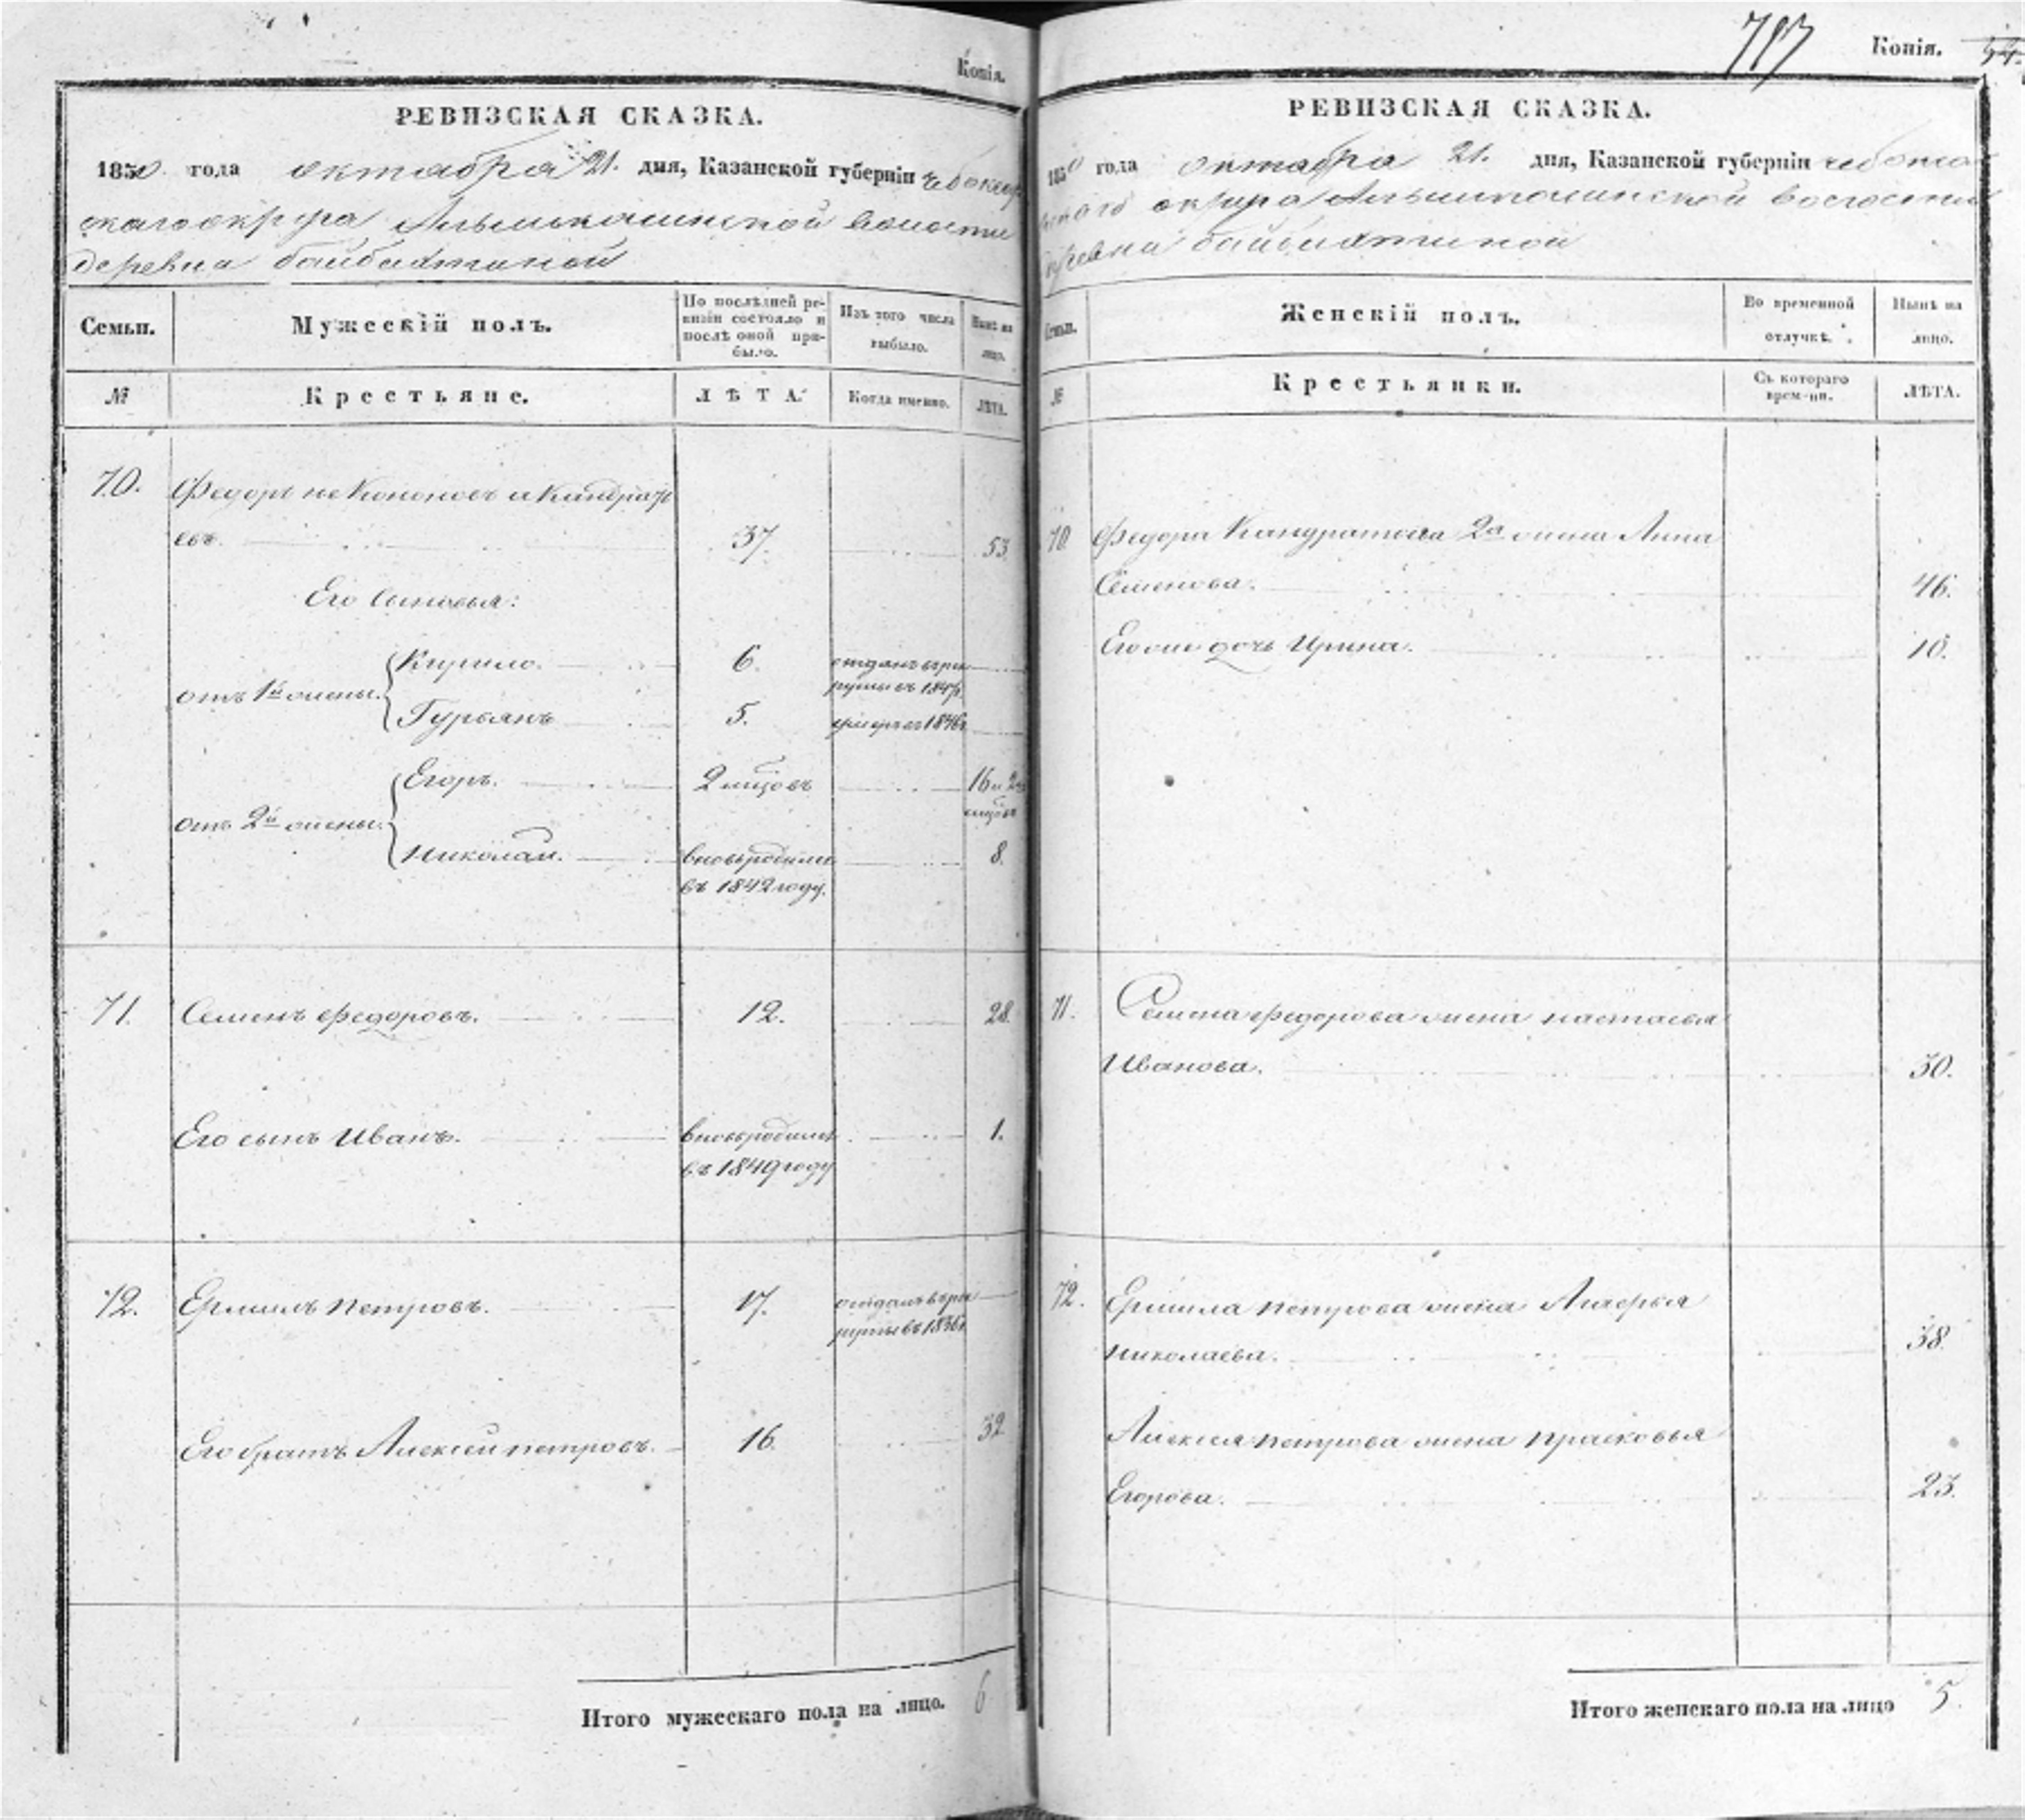 Копія.
РЕВИЗСКАЯ СКАЗКА.
1850 года октабра 21. дня, Казанской губерніи чебоксар
скаго округа Алымкасинской волости
деревна байбахтиной
Семьи. Мужескій полъ. По послѣдней ре-
визіи состояло и
послѣ оной при-
было. Изъ того числа
выбыло. Нынѣ на
лицо.
№ Крестьяне. ЛѢТА. Когда именно. ЛѢТА.
70. Федоръ не Кононовъ а Кандрать
евъ. 37. 53
Его сыновья:
отъ 1й жены. Кирило. 6. отданъ врек
руты въ
Гурьянъ 5. умеръ въ 1846
отъ 2й жены. Егоръ. 2 мцовъ 16 и 2
Николай. вновьродился 8.
въ 1842 году.
71. Семенъ Федоровъ. 12. 28.
Его сынъ Иванъ. вновьродился 1.
въ 1849 году
72. Ермилъ Петровъ. 17. отданъ врек
руты въ 1836
Его братъ Алексей петровъ. 16. 32
Итого мужескаго пола на лицо. 6
Копія.
РЕВИЗСКАЯ СКАЗКА.
1850 года Октабра 21. дня, Казанской губерніи чебокса
скаго округа Алымкасинской волости
деревна байбахтиной
Семьи. Женскій полъ. Во временной
отлучкѣ. Нынѣ на
лицо.
№ Крестьянки. Съ котораго
времени. ЛѢТА.
70. Федора Кандратьева 2я жена Анна
Семенова. 46.
Егоже дочь Ирина. 10.
71. Семена Федорова жена настасья
Иванова. 30.
72. Ермила петрова жена
николаева. 38.
Алексея петрова жена прасковья
Егорова. 23.
Итого женскаго пола на лицо 5.